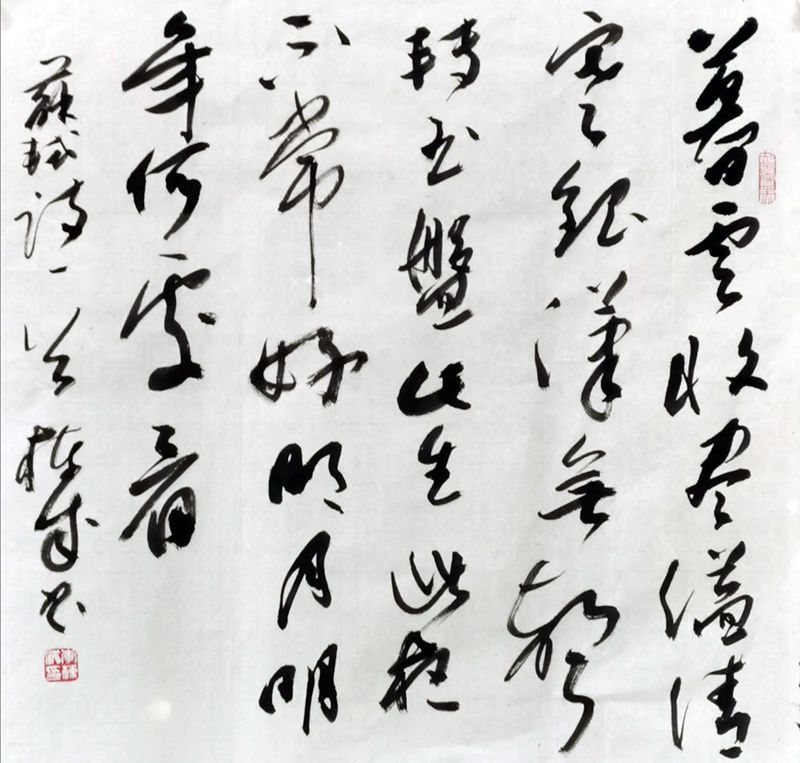 暮雲收尽溢清
寒銀漢無聲
轉玉盤此生此夜
不常好明月明
年何處看
蘇軾詩一首 書